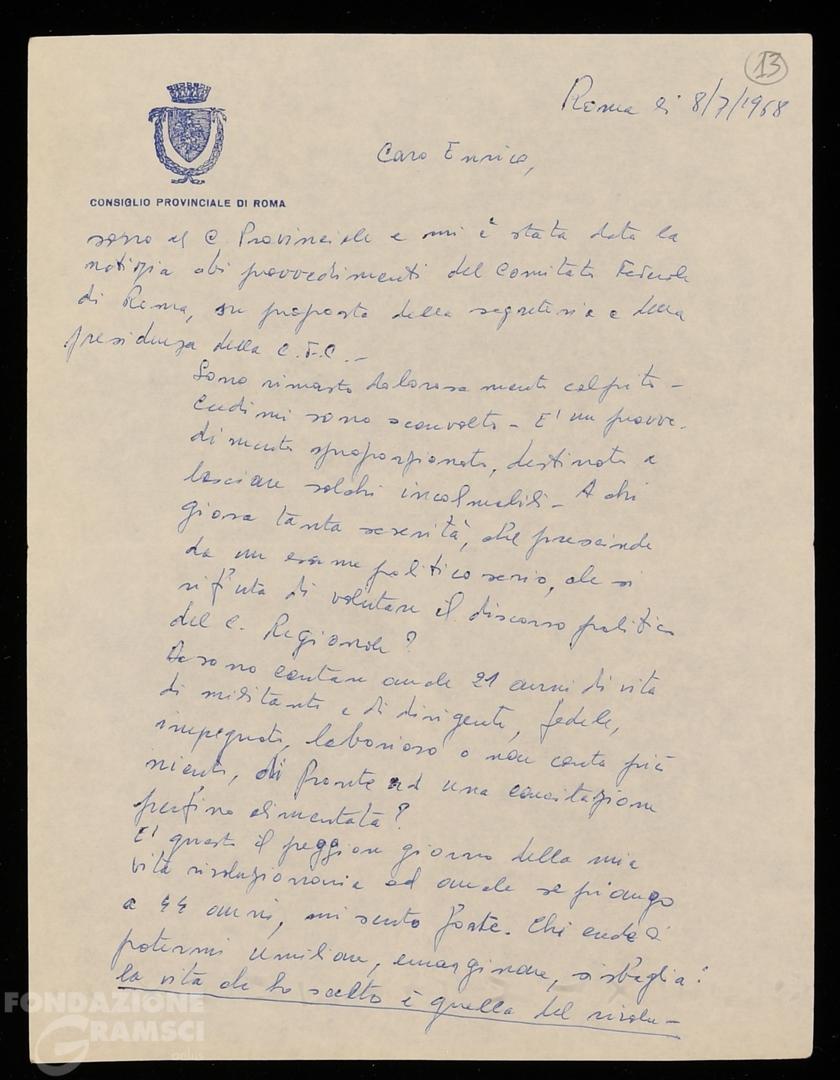 13
Roma li 8/7/1968
Caro Enrico,
CONSIGLIO PROVINCIALE DI ROMA
sono al C. Provinciale e mi è stata data la
notizia di provvedimenti del Comitato Federale
di Roma, su proposta della segreteria e della
presidenza della C.F.C. -
Sono rimasto dolorosamente colpito -
Credimi sono sconvolto - E' un provve-
dimento sproporzionato, destinato a
lasciare solchi incolmabili - A chi
giova tanta severità, che prescinde
da un esame politico serio, che si
rifiuta di valutare il discorso politico
del C. Regionale?
contare anche 21 anni di vita
di militante e di dirigente, fedele,
impegnato, laborioso o non conta più
niente, di fronte ad una concitazione
perfino alimentata?
E' questo il peggior giorno della mia
vita rivoluzionaria ed anche se piango
a 44 anni, mi sento forte. Chi crede di
potermi umiliare, emarginare, si sbaglia:
la vita che ho scelto è quella del rivolu-
FONDAZIONE
GRAMSCI
onlus